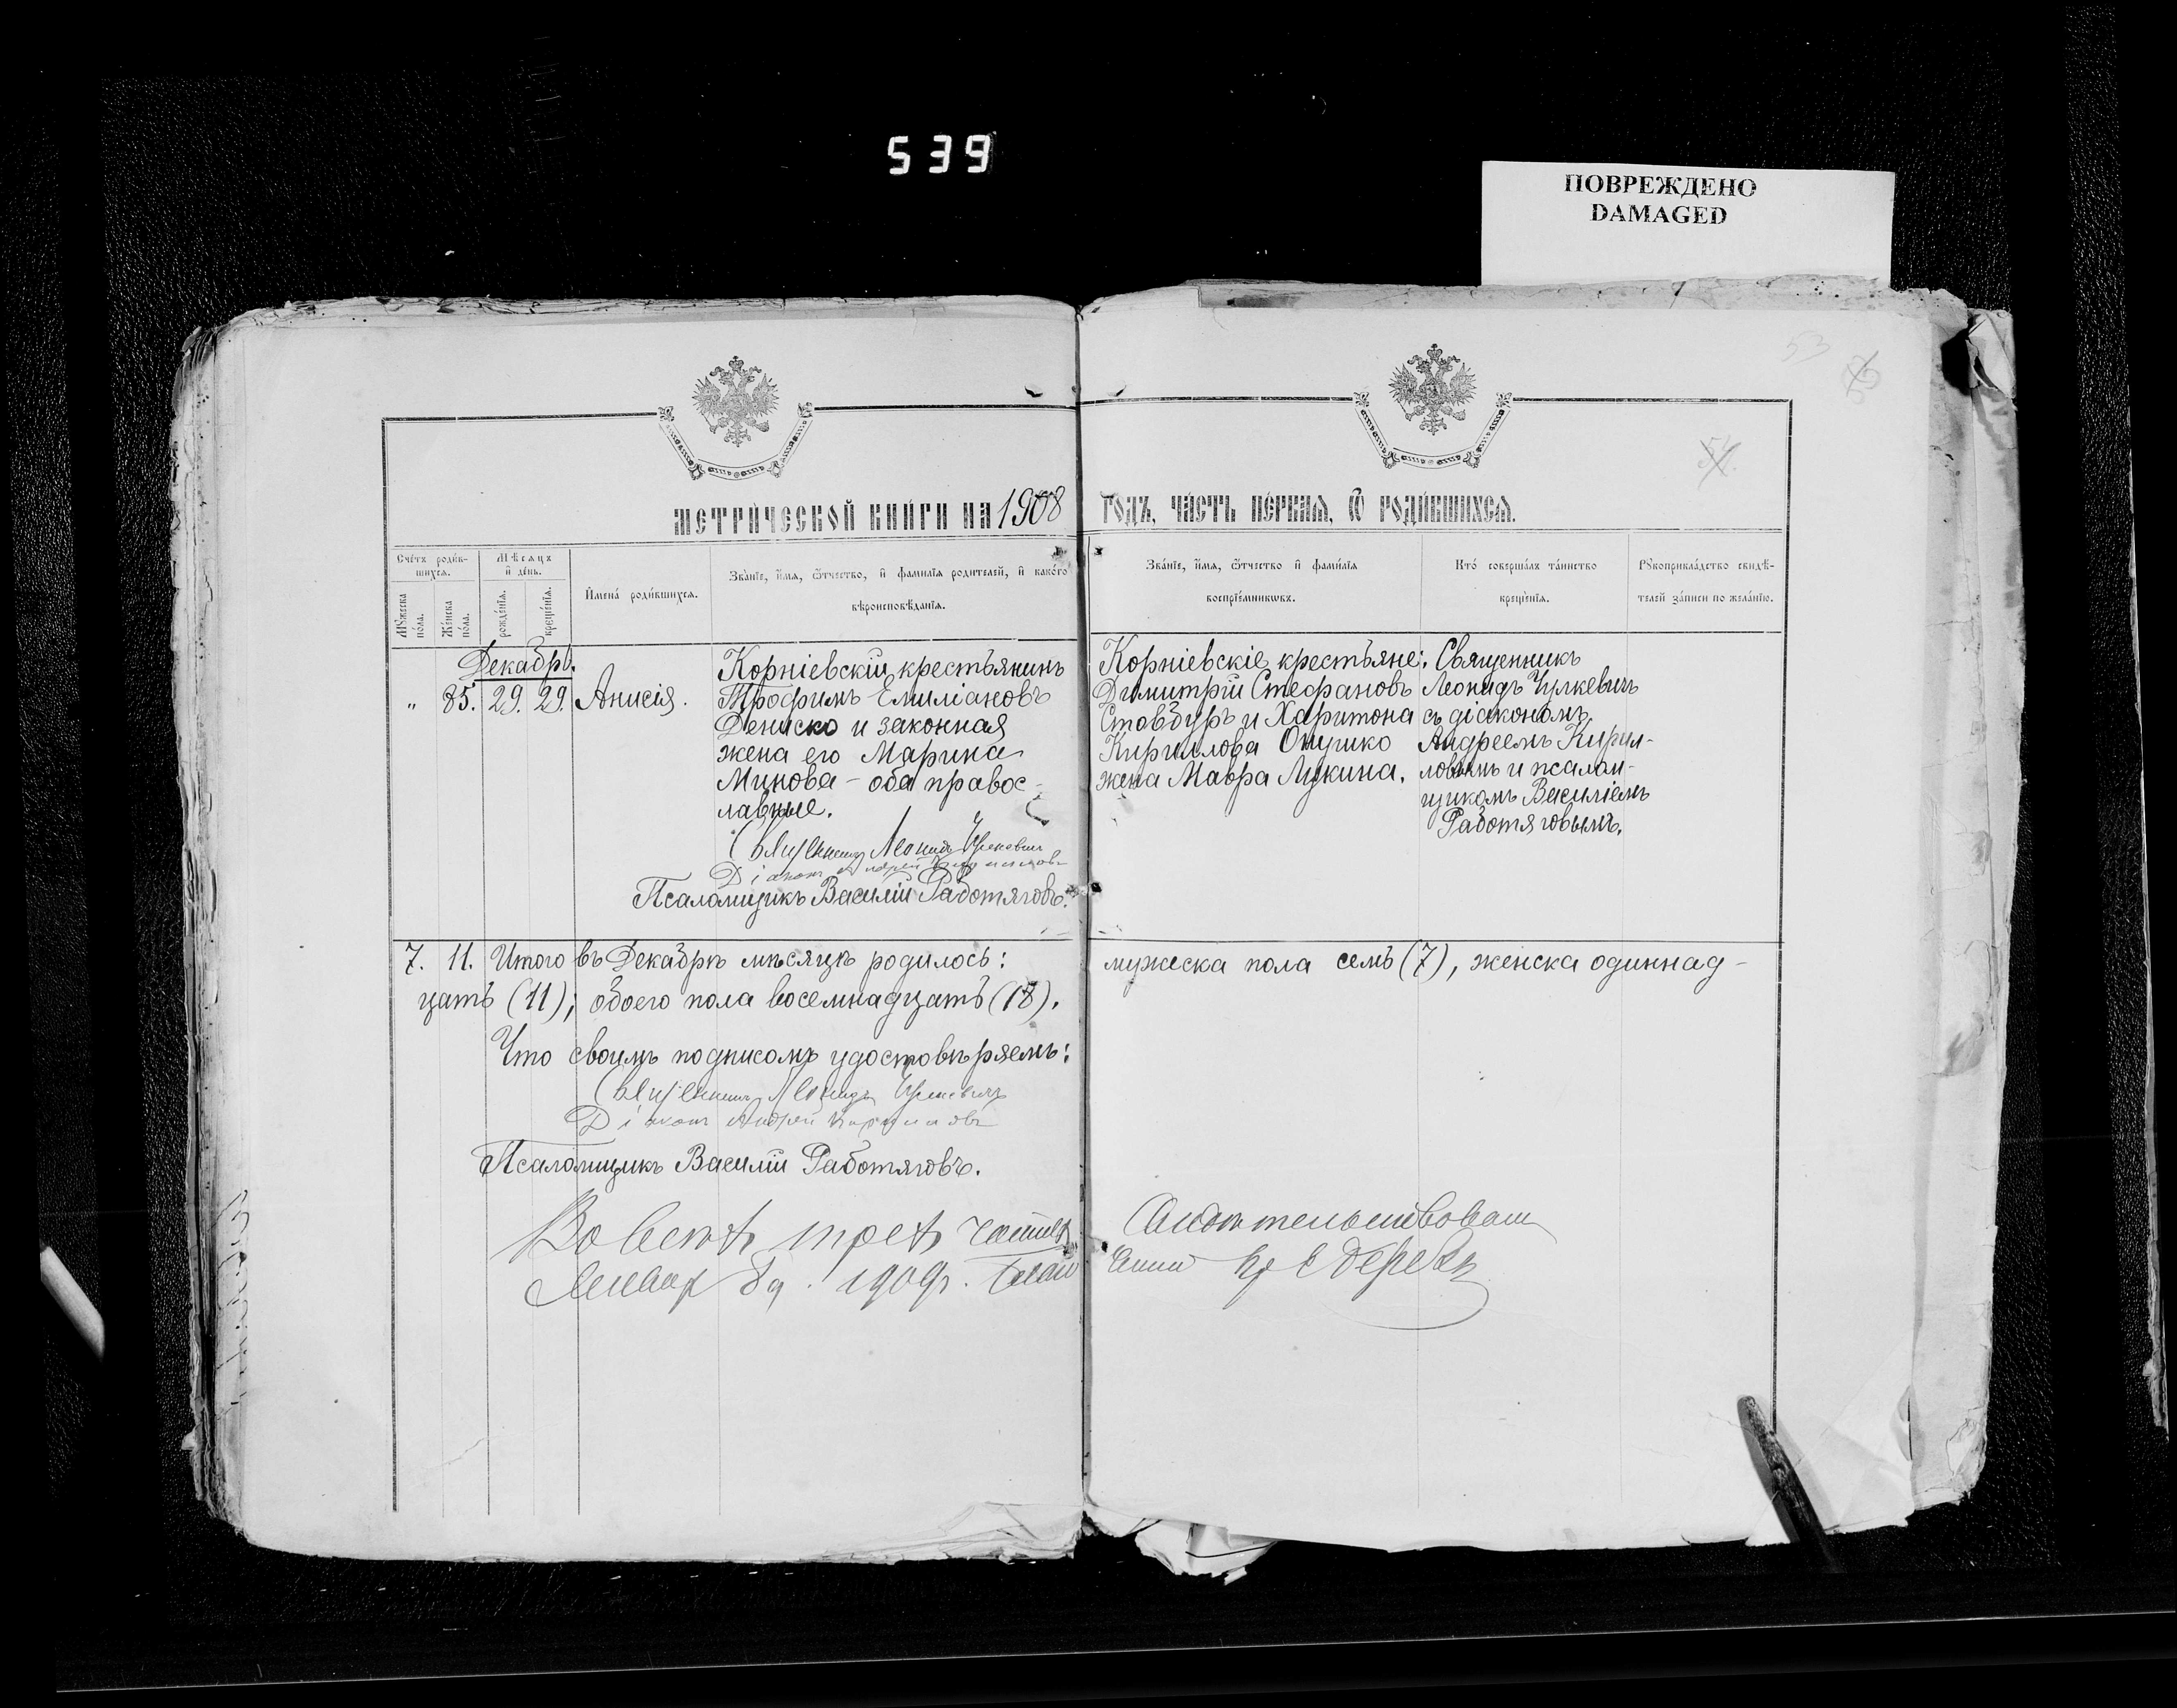 539
ПОВРЕЖДЕНО
DAMAGED
53
54.
МЕТРИЧЕСКОЙ КНИГИ НА 1908 ГОДЪ, ЧАСТЬ ПЕРВАЯ, Ѽ РОДИВШИХСЯ.
Счетъ родив-
шихся.
Мѣсяцъ
и день.
Имена родившихся.
Званіе, имя, ѿтчество, и фамилія родителей, и какого
вѣроисповѣданія.
Мужеска
пола.
Женска
пола.
рожденія.
крещенія.
Званіе, имя, ѿтчество и фамилія
воспріемниковъ.
Кто совершалъ таинство
крещенія.
Рукоприкладство свидѣ-
телей записи по желанію.
Декабрь.
„ 85. 29. 29. Анисія.
Корніевскій крестьянинъ
Трофимъ Емиліановъ
Дениско и законная
жена его Марина
Минова - оба правос-
лавные.
Священникъ Леонидъ Чулкевичъ
Діаконъ Андрей Кирилловъ
Псаломщикъ Василій Работяговъ.
Корніевскіе крестьяне:
Димитрій Стефановъ
Ставбуръ и Харитона
Кириллова Онушко
жена Мавра Лукина.
Священникъ
Леонидъ Чулкевичъ
съ діакономъ
Андреемъ Кирил-
ловымъ и псалом-
щикомъ Василіемъ
Работяговымъ.
7. 11. Итого въ Декабрѣ мѣсяцѣ родилось: мужеска пола семь (7), женска одиннад-
цать (11); обоего пола восемнадцать (18).
Что своимъ подписомъ удостовѣряемъ:
Священникъ Леонидъ Чулкевичъ
Діаконъ Андрей Кирилловъ
Псаломщикъ Василій Работяговъ.
Во всехъ трехъ частяхъ Свидѣтельствовалъ
1909г.